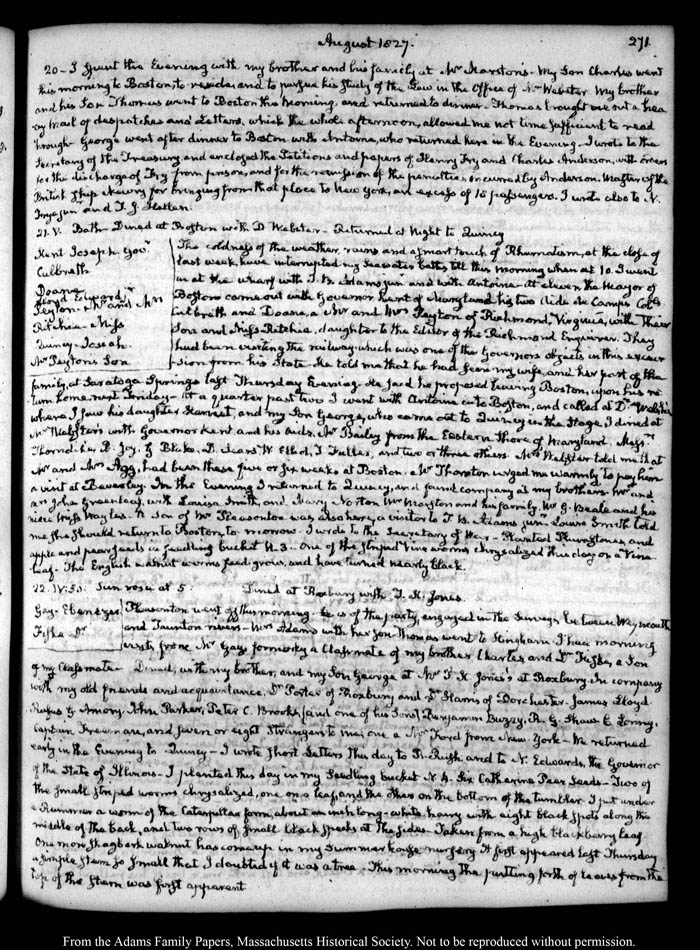 August 1827.
271
20 – I spent the Evening with my brother and his family at Mr Marston's. My Son Charles went
this morning to Boston, to reside, and to pursue his study of the Law in the Office of Mr Webster. My brother
and his Son Thomas went to Boston this morning, and returned to dinner. Thomas brought me out a hea-
vy mail of despatches and Letters, which the whole afternoon, allowed me not time sufficient to read
through. George went after dinner to Boston with Antoine, who returned here in the Evening. I wrote to the
Secretary of the Treasury and enclosed the Petitions and papers of Henry Fry and Charles Anderson, with orders
for the discharge of Fry from prison, and for the remission of the penalties incurred by Anderson, Master of the
British Ship for bringing from that place to New York, an excess of 18 passengers. I wrote also to N.
Frye jun and T. J.
21. V. Bath – Dined at Boston with D. Webster – Returned at Night to Quincy
Kent Joseph Govr
Culbrath
Doane
Lloyd Edward
Peyton – Mr and Mrs
Ritchie – Miss
Quincy – Josiah
Mr Peyton's Son
The coldness of the weather, rains and a smart touch of Rhumatism, at the close of
last week, have interrupted my sea water baths, till this morning when at 10. I went
in at the wharf with T. B. Adams jun and with Antoine. At eleven, the Mayor of
Boston came out with Governor Kent of Maryland his two Aide de Camps Cols
Culbrath and Doane, a Mr and Mrs Peyton of Richmond, Virginia, with their
Son and Miss Ritchie, daughter to the Editor of the Richmond Enquirer. They
had been visiting the railway which was one of the Governors objects in this excur-
sion from his State. He told me that he had seen my wife, and her part of the
family, at Saratoga Springs last Thursday Evening. He said he proposed leaving Boston, upon his re-
turn home, next Friday – At a quarter past two I went with Antoine into Boston, and called at Dr Welsh's
where I saw his daughter Harriet, and my Son George, who came out to Quincy in the Stage. I dined at
Mr Webster's with Governor Kent and his Aids, Mr Bailey from the Eastern Shore of Maryland. Messrs
Thorndike, B. Joy, G Blake, D. Sears W. Elliot, T Fuller, and two or three others. Mrs Webster told me that
Mr and Mrs Agg, had been these five or six weeks at Boston. Mr Thorndike urged me warmly to pay him
a visit at Beverley. In the Evening I returned to Quincy, and found company at my brothers. Mr and
Mrs John Greenleaf, with Louisa Smith, and Mary Norton Mr Marston and his family, Mr G. Beale and his
niece Miss Wales. A Son of Mr Pleasonton was also here, a visitor to T. B. Adams jun. Louisa Smith told
me she should return to Boston, to-morrow. I wrote to the Secretary of War – Planted Plumstones, and
apple and pear seeds in seedling bucket N. 3. One of the striped Vine worms chrysalized this day on a Vine-
leaf. The English walnut worms feed, grow, and have turned nearly black.
22. IV:30. Sun rose at 5. Dined at Roxbury with T. K. Jones.
Gay. Ebenezer
Fiske Dr
Pleasonton went off this morning – he is of the party, engaged in the Survey, between Weymouth
and Taunton rivers – Mrs Adams with her Son Thomas went to Hingham. I had morning
visits from Mr Gay, formerly a Classmate of my brother Charles, and Dr Fiske, a Son
of my Classmate. Dined, with my brother, and my Son George at Mr T. K Jones's at Roxbury. In company
with my old friends and acquaintance. Dr Porter of Roxbury and Dr Harris of Dorchester. James Lloyd.
Rufus G Amory. John Parker, Peter C. Brooks (and one of his Sons) Benjamin Bussy, R. G. Shaw E. Loring,
Captain Freeman, and seven or eight Strangers to me, one a Mr Ford from New York – We returned
early in the Evening to Quincy – I wrote short Letters this day to R. Rush, and to N. Edwards, the Governor
of the State of Illinois – I planted this day in my Seedling bucket N. 4. Six Catharine Pear Seeds – Two of
the small striped worms chrysalized, one on a leaf, and the other on the bottom of the tumbler. I put under
a Rummer a worm of the Caterpillar form, about an inch long – white, hairy with eight black spots along the
middle of the back, and two rows of small black specks at the sides. Taken from a high blackberry leaf.
One more Shagbark walnut has come up in my Summer house nursery. It first appeared last Thursday
a simple stem so small that I doubted if it was a tree. This morning the putting forth of leaves from the
top of the Stem was first apparent.
From the Adams Family Papers, Massachusetts Historical Society. Not to be reproduced without permission.